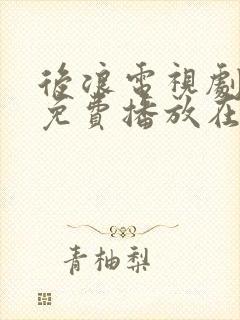 後浪電視劇
免費播放在
青柚梨